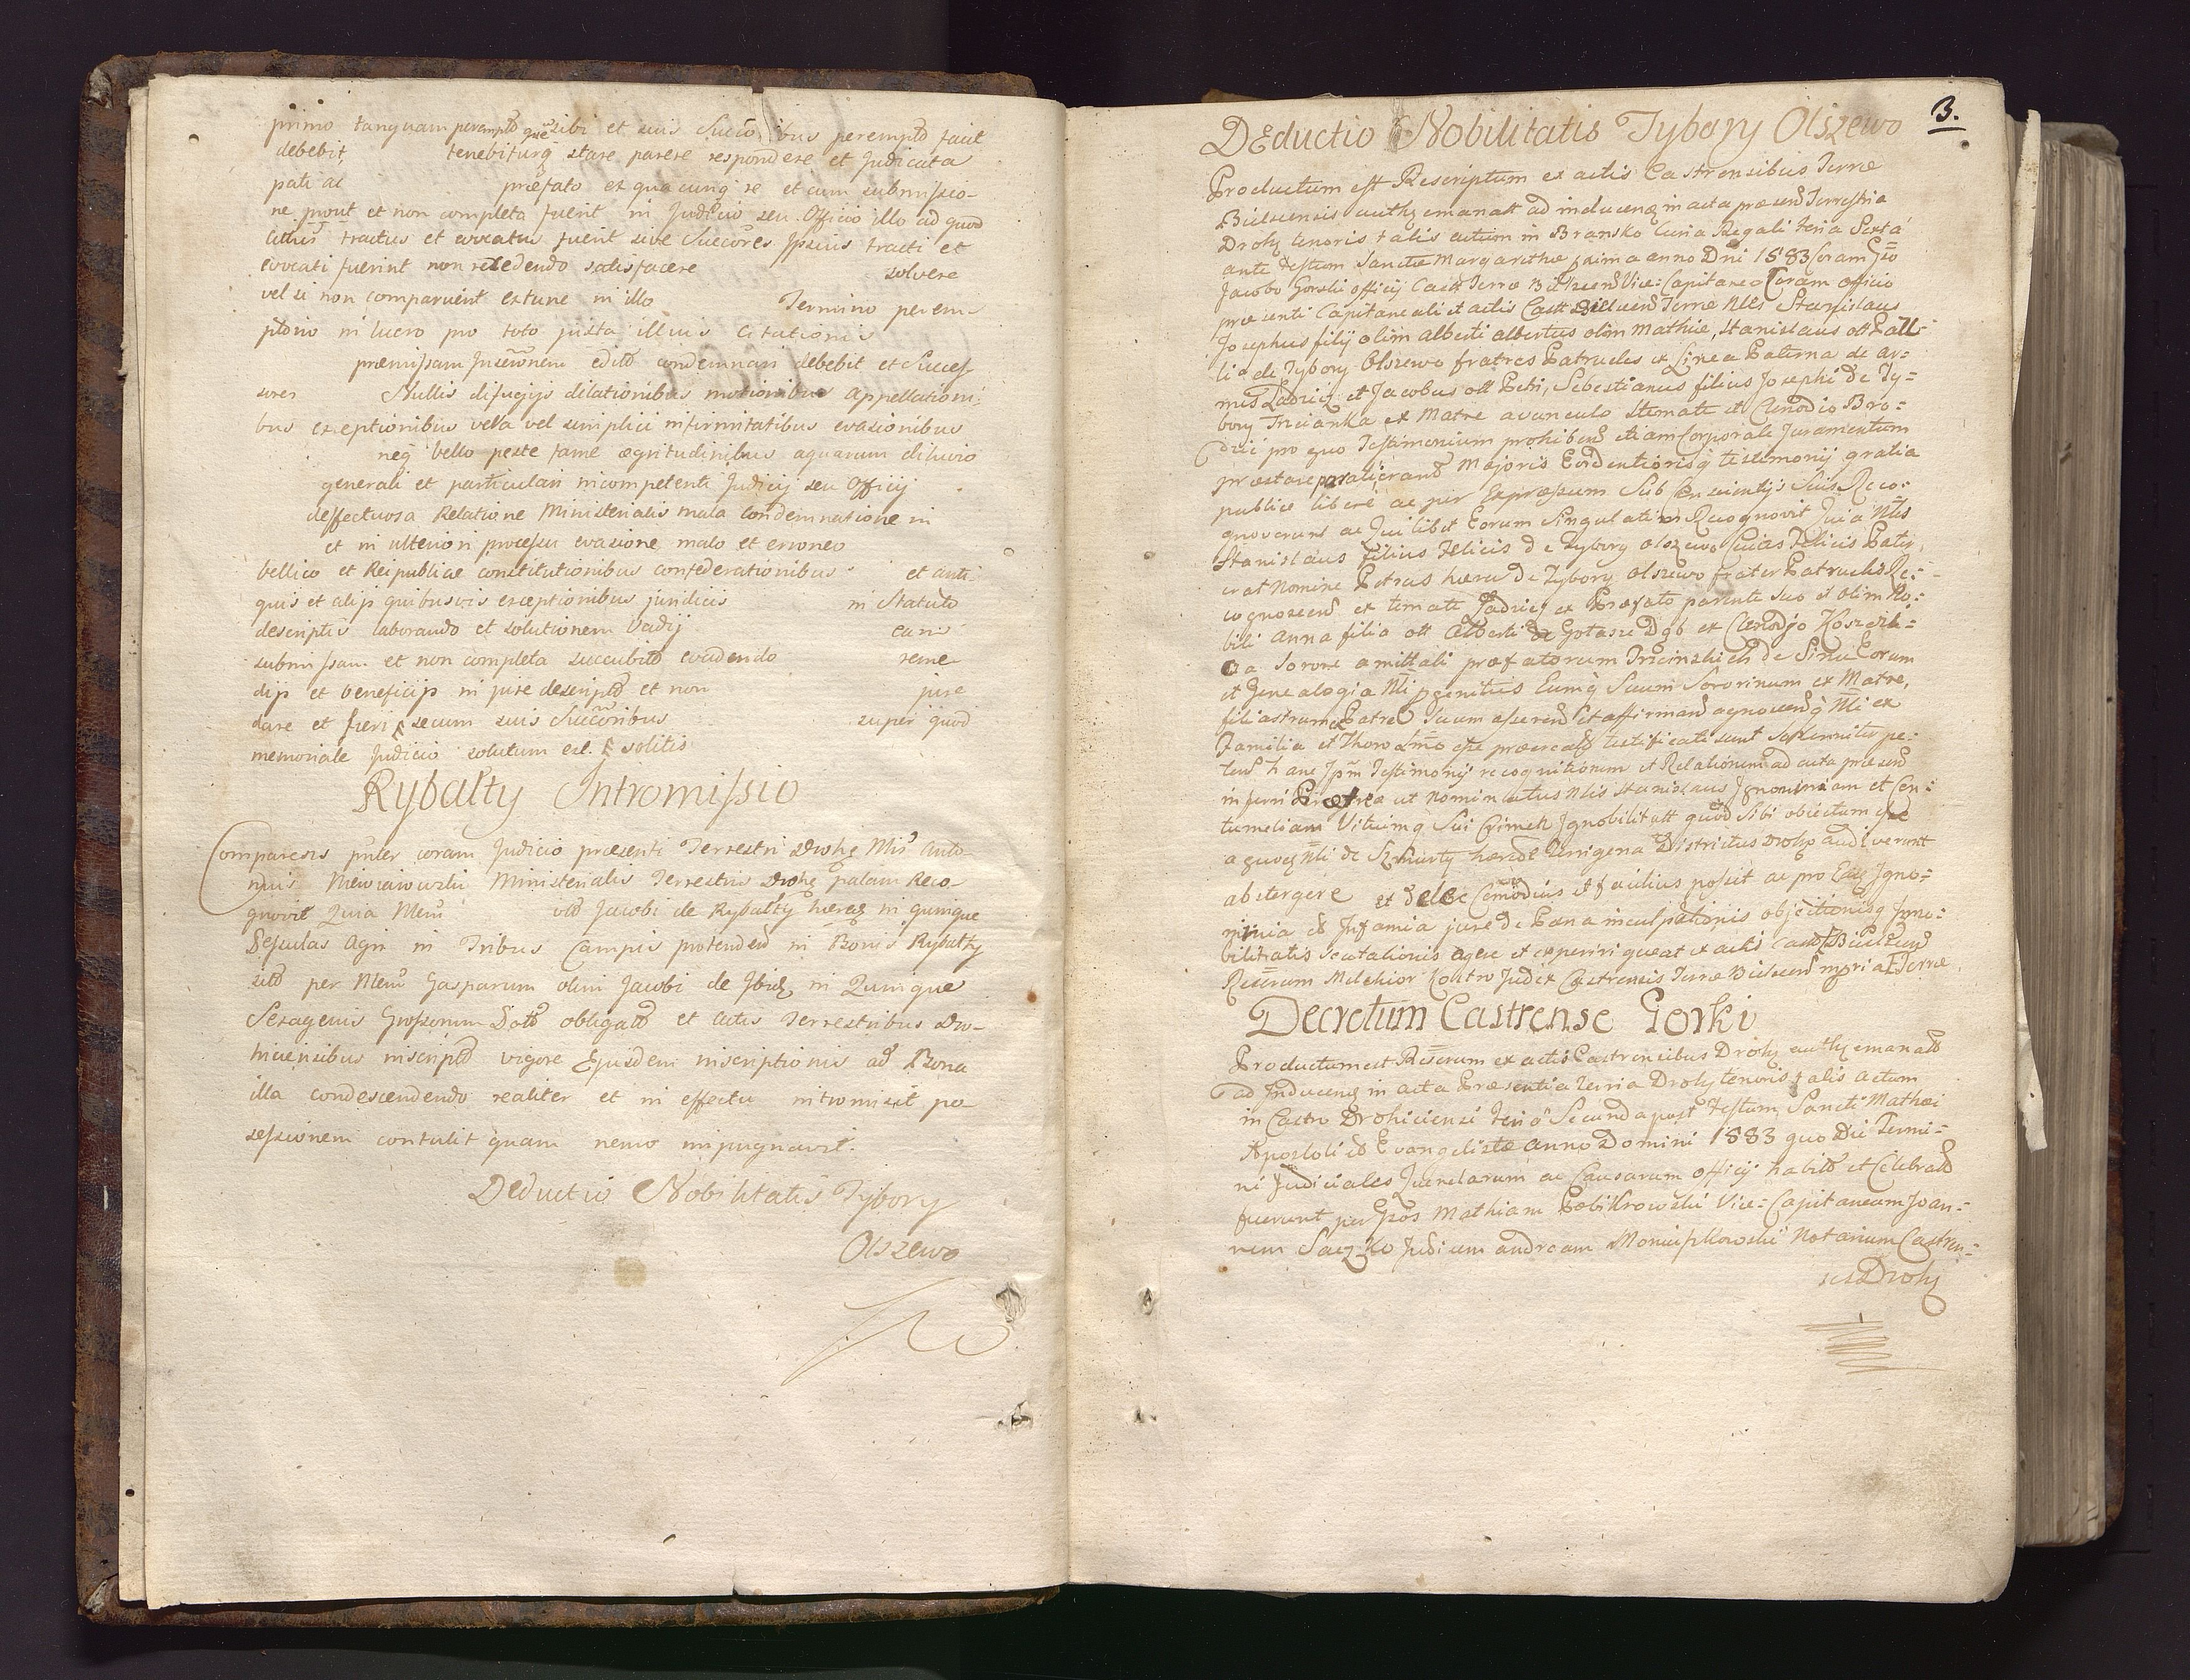 primo tanquam perempto que sibi et suis Succo ibus perempto faeit
debebit, tenebiturq stare parere respondere et Judicata
pati ac præfato ex quacunq re et cum submissio-
ne prout et non completa fuerit in Judicio seu Officio illo ad quod
tractus et evocatus fuerit sive Succores Ipsius tracti et
evocati fuerint non recedendo satisfacere solvere
vel si non comparuerit extunc in illo Termino perem-
ptorio in lucro pro toto juxta illius Citationis
præmissam Inscrionem edito condemnari debebit et Succes-
sores Nullis difugijs dilationibus motionibus Appellationi-
bus exceptionibus vera vel simplici infirmitatibus evasionibus
neq bello peste fame ægritudinibus aquarum diluvio
generali et particulari incompetenti Judicij seu Officij
deffectuosa Relatione Ministerialis mala Condemnatione in
et in ulteriori processu evasione malo et erroneo
bellico et Reipublicae constitutionibus confederationibus et anti-
quis et alijs quibusvis exceptionibus juridicis in Statuto
descriptis laborando et solutionem Vadij eam
submissam et non completa succubito evadendo reme-
dijs et beneficijs in jure descripto et non jure
dare et fieri secum suis Succoribus super quod
memoriale Judicio solutum est. solitis
Rybałty Intromissio
Comparens pnter coram Judicio præsenti Terrestri Drohg Mis Anto-
nius Ministerialis Terrestris Drohg palam Reco-
gnovit Quia Mem Jacobi de Rybałty hæreds in quinque
Sessulas Agri in Tribus Campis protenden in Bonis Rybałty
sito per Mem Gasparum olim Jacobi de Ibid in Quinque
Sexagenis Grossorum Doto obligato et Actis Terrestribus Dro-
hiciensibus inscripto vigore Ejusdem inscriptionis ad Bona
illa condescendendo realiter et in effectu intromisit pos-
sessionem contulit quam nemo impugnavit.
Deductio Nobilitatis Tybory
Olszewo
3.
DEductio Nobilitatis Tybory Olszewo
Productum est Rescriptum ex actis Castrensibus Terræ
Bielscensis authg emanatt ad inducenq in acta præsend Terrestria
Drohg tenoris talis actum in Bransko Curia Regali feria Sexta
ante Festum Sanctæ Margarethæ prima anno Dni 1583 Coram Gso
Jacobo Gorski officij Castr Terræ Bielscend Vice-Capitaneo Coram officio
præsenti Capitaneali et actis Castr Bielscend Terræ Nlls Stanislaus
Josephus filij olim Alberti Albertus olim Mathiæ, Stanislaus ott Gall-
li de Tybory Olszewo fratres Patrueles ex Linea Paterna de ar-
mis Jadricz et Jacobus ott Petri, Sebestianus filius Josephi de Ty-
bory Trzcianka ex Matre avunculo stemate et Clenodio Bro-
dzic pro quo Testimonium prohibend etiam Corporale Juramentum
præstare parati erant Majoris Evidentiorisq testimonij gratia
publice libere ac per Expressum Sub Conscientijs Suis Reco-
gnoverunt ac Quilibet Eorum Singulatim Recognovit Quia Nlls
Stanislaus filius Felicis de Tybory Olszewo Cuias Felicis Pater,
erat Nomine Petrus hæres de Tybory Olszewo frater Patruelis Re-
cognoscend ex temate Jadricz ex Præfato parente suo et olim No-
bili Anna filia ott Alberti de Gołasze Dąb ex Clenodjo Koszczih-
a Sorore amittali præfatorum Trzcinskich de Sinu Eorum
et Genealogia Nli pgenitus Eumq Suum Sororinum ex Matre,
filiastrum Patre Suum asserend et affirmand agnovend q Nli ex
Familia et Thoro Lmo esse procreato testificati sunt solemniter pe-
tend hanc Ipm Testimonij recognitionem et Relationem ad acta præsend
inserri Præterea ut nominatus Nlis Stanislaus Ignominiam et Con-
tumeliam Vitiumq Sui Crimen Ignobilitatt quod Sibi obiectum esse
a quoq Nli de Szmurły hæred Terrigena Districtus Drohg audiverunt
abstergere et delere Comodius et facilius possit ac pro Eaq Igno-
minia et Infamia jure de Pæna inculpationis objectionisq Igno-
bilitatis scutationis agere et experiri queat ex actis Castr Bielscend
Rescrum Melchior Kostro Judex Castrensis Terræ Bielscend mpria Terræ
Decretum Castrense Gorki
Productum est Rescrum ex actis Castrensibus Drohg authg emanatt
ad Inducenq in acta Præsentia Terria Drohg tenoris talis actum
in Castro Drohiciensi feria Secunda post Festum Sancti Mathæi
Apostoli et Evangelistæ Anno Domini 1583 quo Die Termi-
ni Judiciales Querelarum ac Causarum officij habito et Celebrato
fuerunt per Gsos Mathiam Pobikrowski Vice-Capitaneum Joan-
nem Saczko Judicem andream Notarium Castren-
ses Drohg